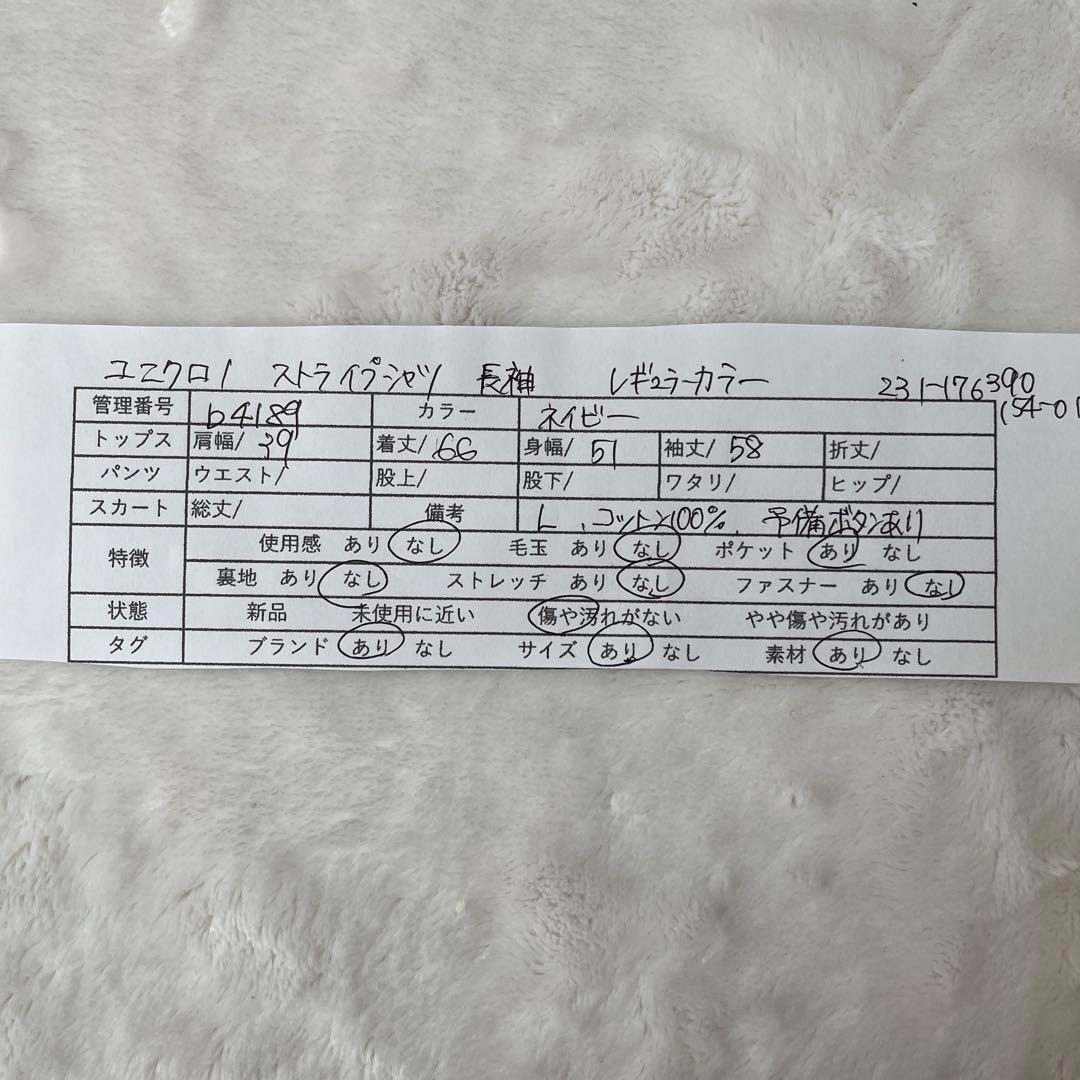 ユニクロ ストライプシャツ 長袖 レギュラーカラー 231-176390
(54-01
管理番号 b4189 カラー ネイビー
トップス 肩幅/ 39 着丈/ 66 身幅/ 51 袖丈/ 58 折丈/
パンツ ウエスト/ 股上/ 股下/ ワタリ/ ヒップ/
スカート 総丈/ 備考 L、コットン100%、予備ボタンあり
特徴 使用感 あり なし 毛玉 あり なし ポケット あり なし
裏地 あり なし ストレッチ あり なし ファスナー あり なし
状態 新品 未使用に近い 傷や汚れがない やや傷や汚れがあり
タグ ブランド あり なし サイズ あり なし 素材 あり なし